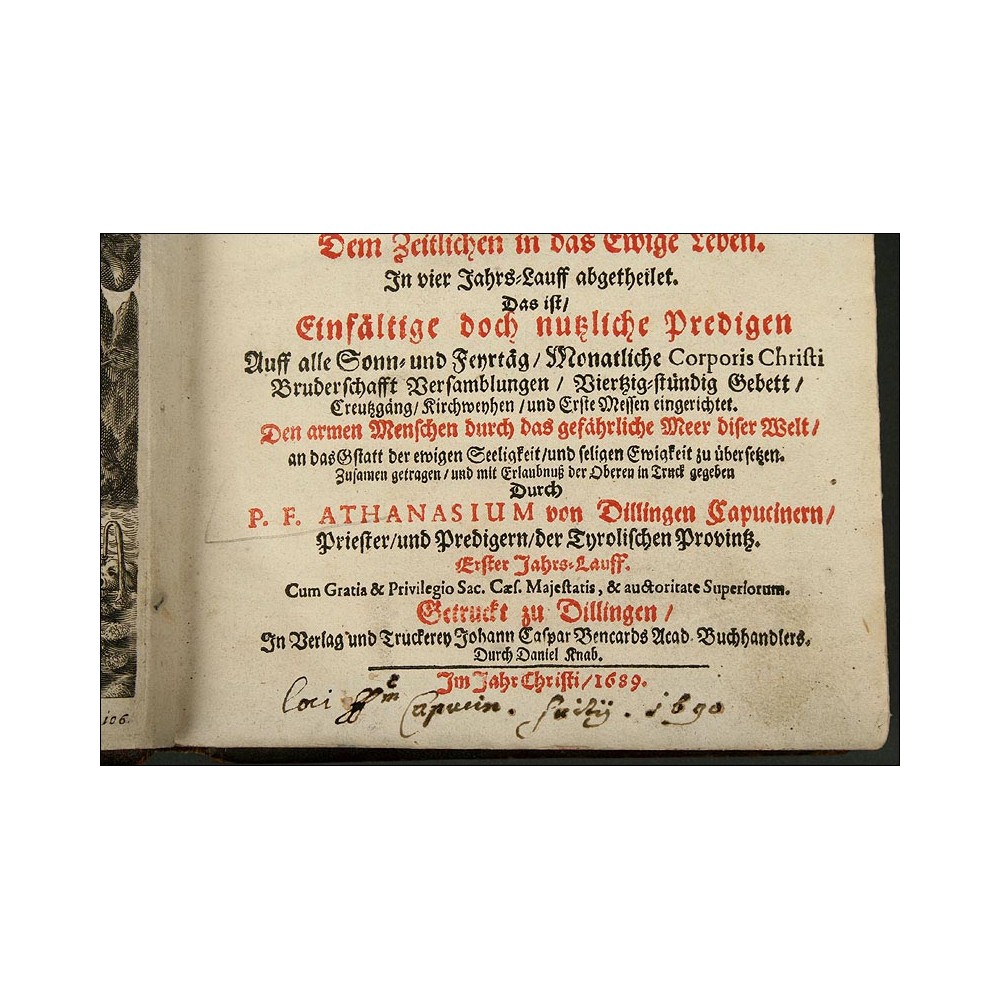 Dem Zeitlichen in das Ewige Leben.
In vier Jahrs-Lauff abgetheilet.
Das ist/
Einfältige doch nutzliche Predigen
Auff alle Sonn- und Feyrtäg/ Monatliche Corporis Christi
Bruderschafft Versamblungen / Viertzig-stündig Gebett /
Creutzgäng/ Kirchweyhen /und Erste Messen eingerichtet.
Den armen Menschen durch das gefährliche Meer diser Welt/
an das Gstatt der ewigen Seeligkeit/und seligen Ewigkeit zu übersetzen.
Zusamen getragen / und mit Erlaubnuß der Oberen in Truck gegeben
Durch
P. F. ATHANASIUM von Dillingen Capucinern/
Priester/und Predigern/der Tyrolischen Provintz.
Erster Jahrs-Lauff.
Cum Gratia & Privilegio Sac. Cæs. Majestatis, & auctoritate Superiorum.
Getruckt zu Dillingen/
In Verlag und Truckerey Johann Caspar Bencards Acad. Buchhandlers.
Durch Daniel Knab.
Im Jahr Christi/1689.
Loci Capucin. 1690
106.